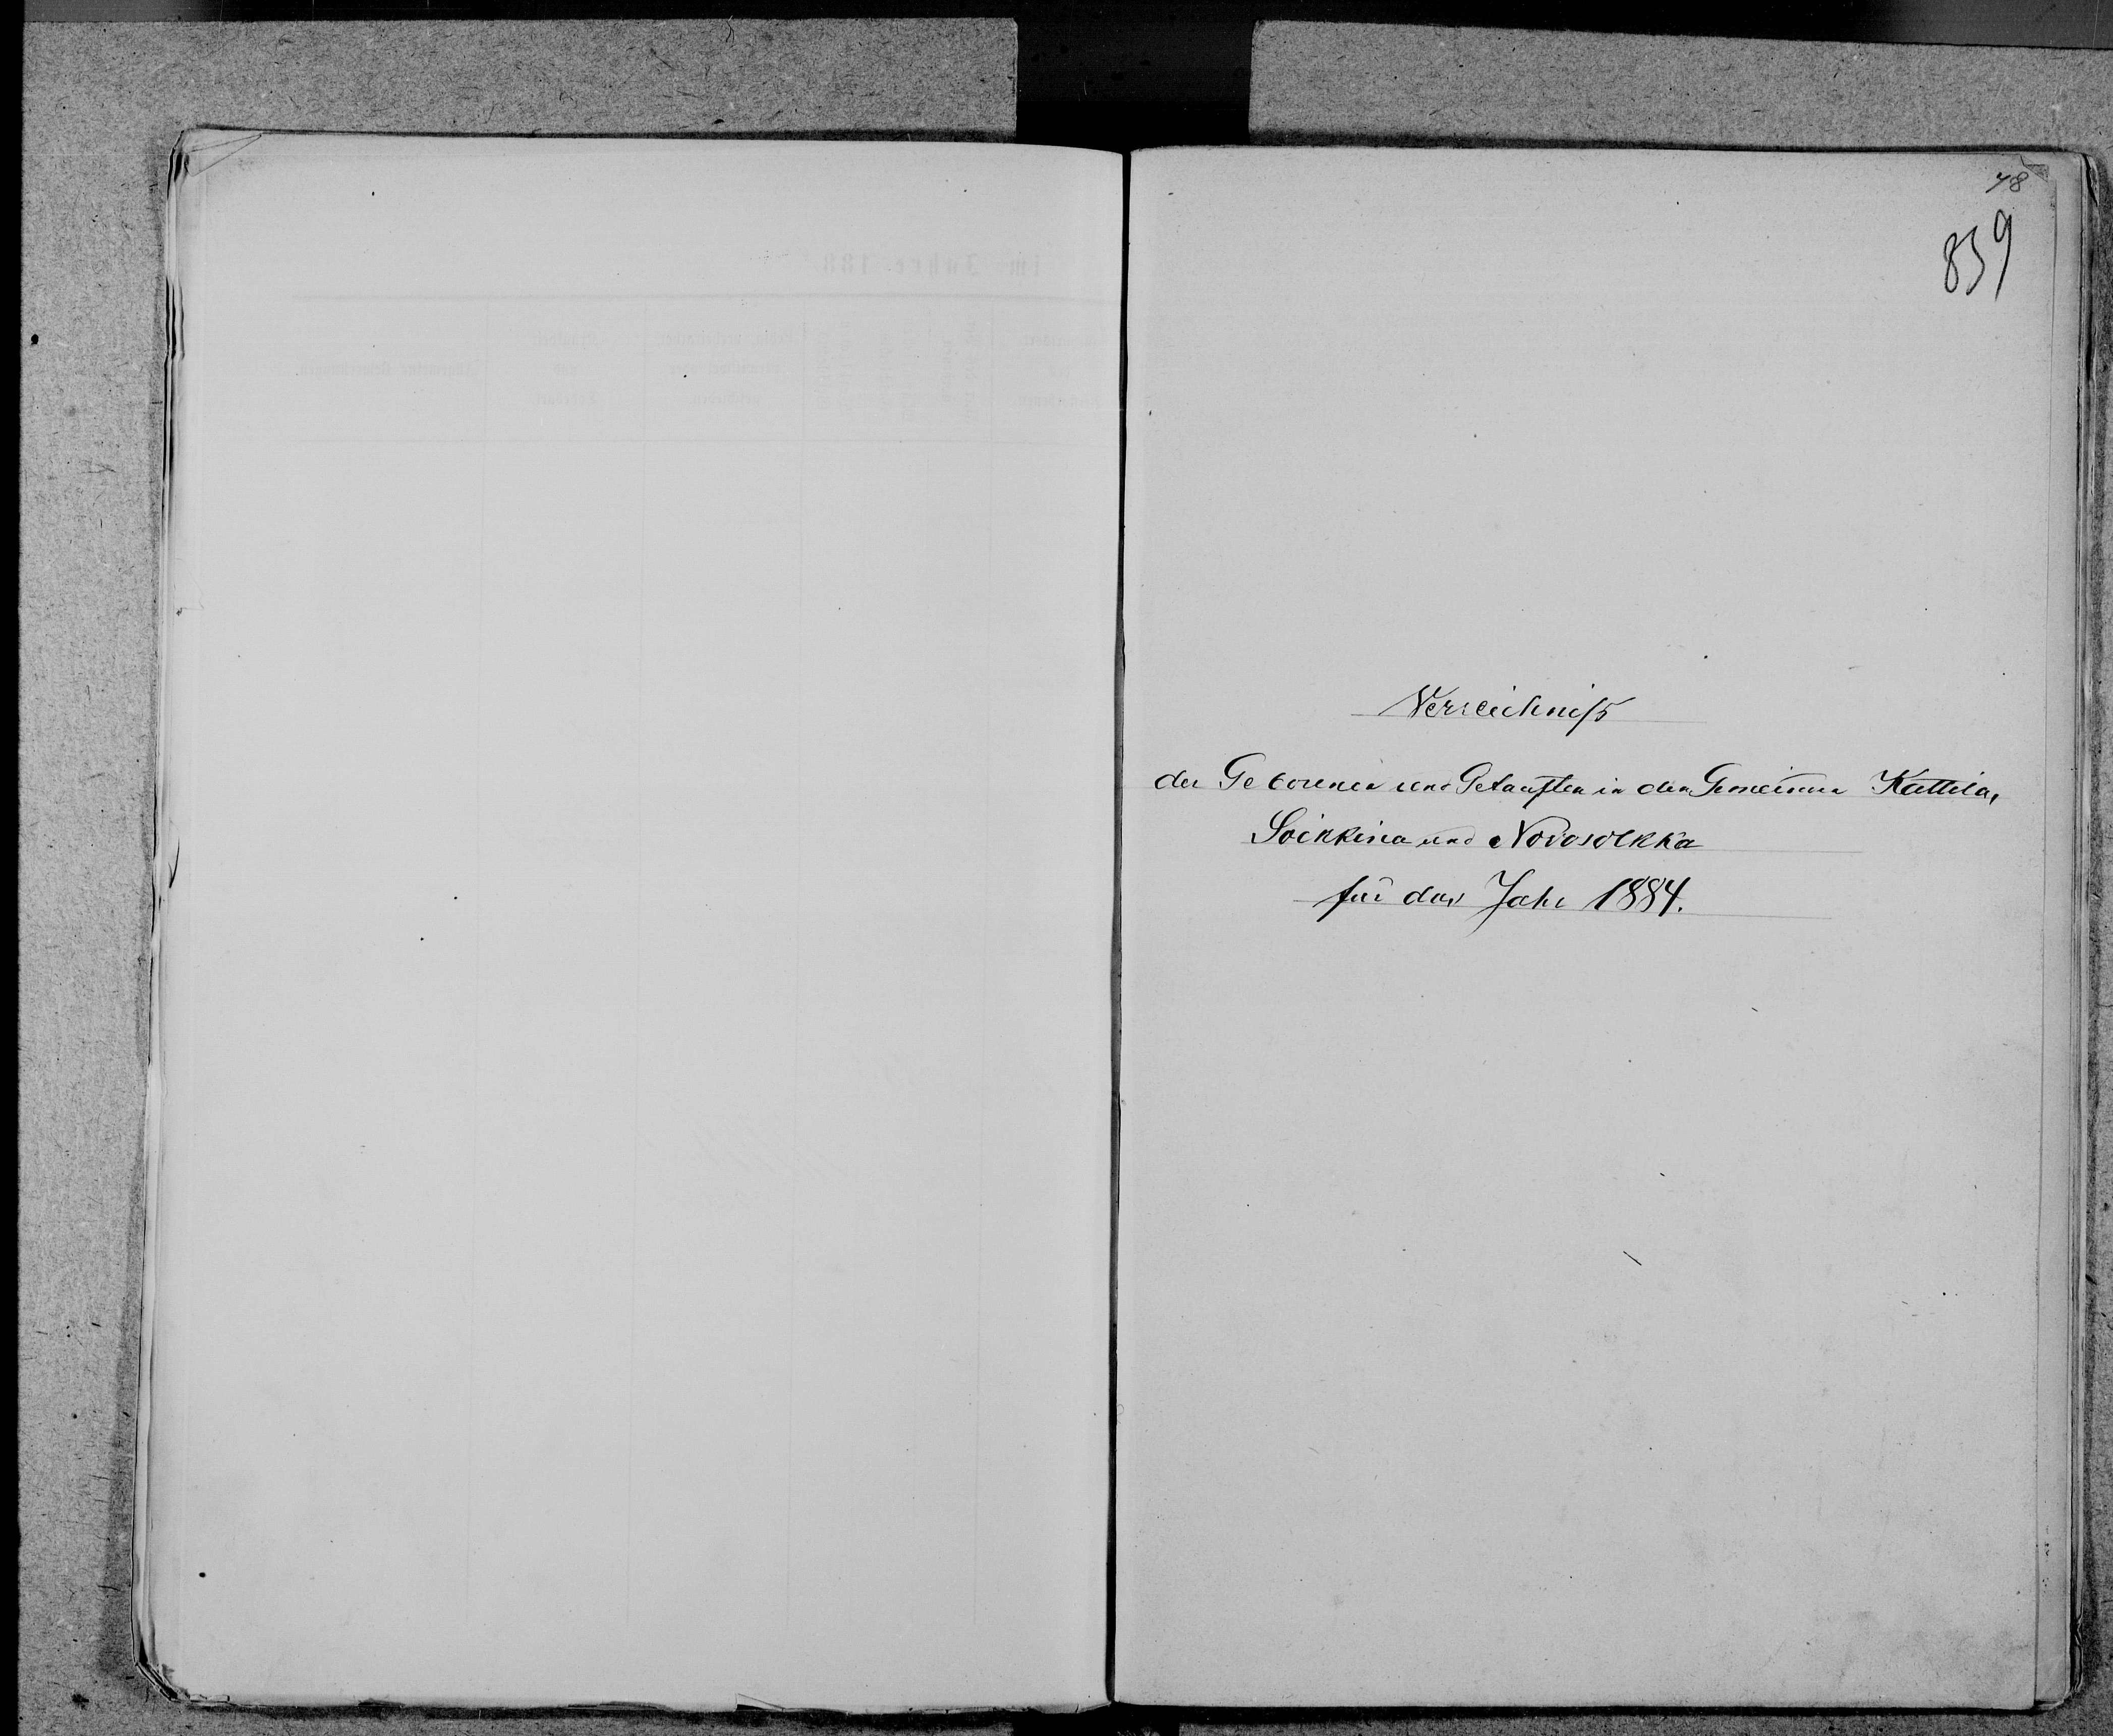 78
839
Verzeichniß
der Geborenen und Getauften in den Gemeinden Kattila,
Soikkina und Novosolkka
für das Jahr 1884.